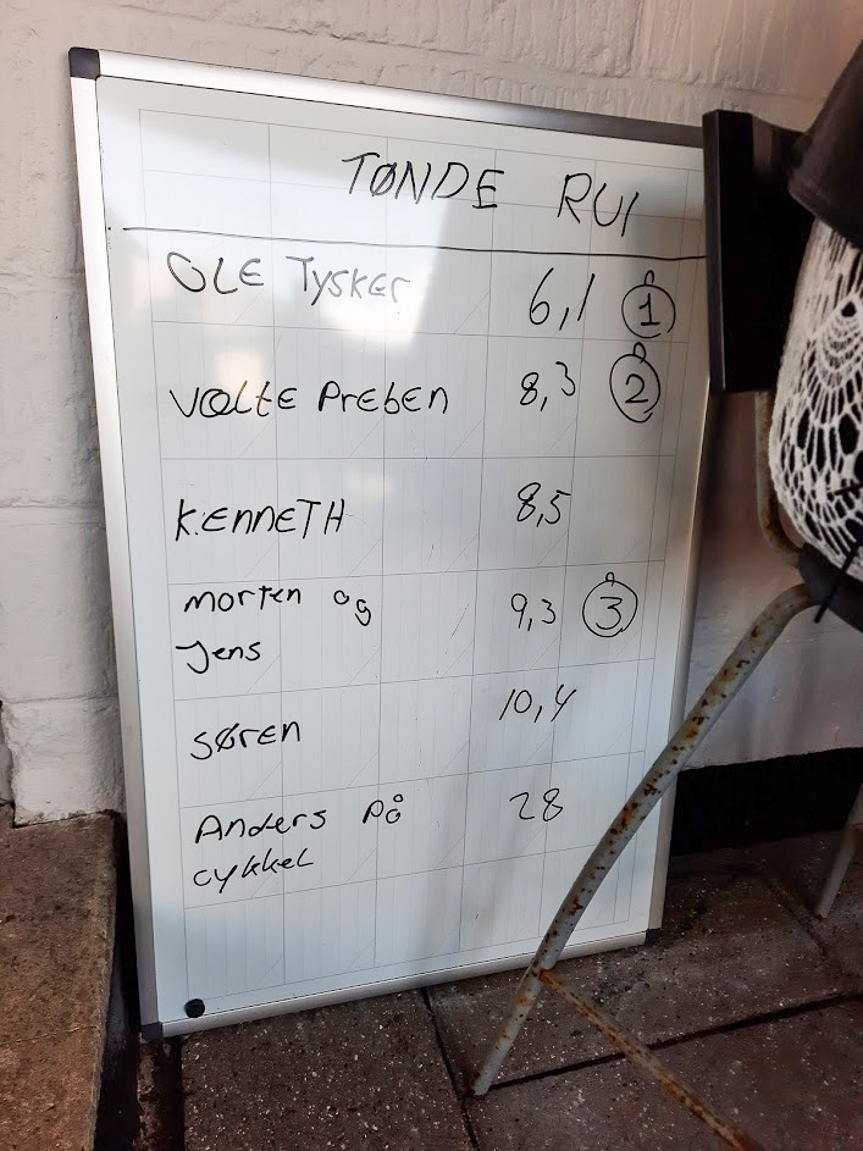 TØNDE RUL
OLE TYSKER 6,1 1
VOLTE PREBEN 8,3 2
KENNETH 8,5
morten og 9,3 3
Jens
SØREN 10,4
Anders på 28
cykkel